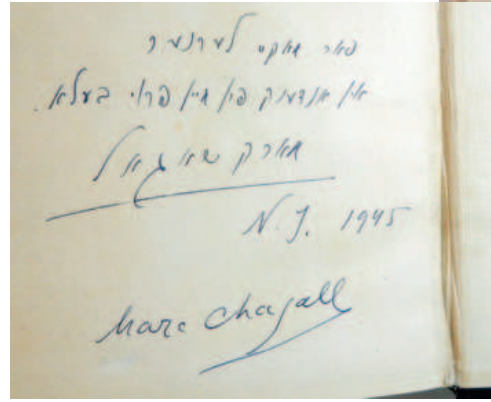 פאר מאקס לערנער
אין אנדענק פון מיין פרוי בעלא.
מארק שאגאל
N.J. 1945
Marc Chagall